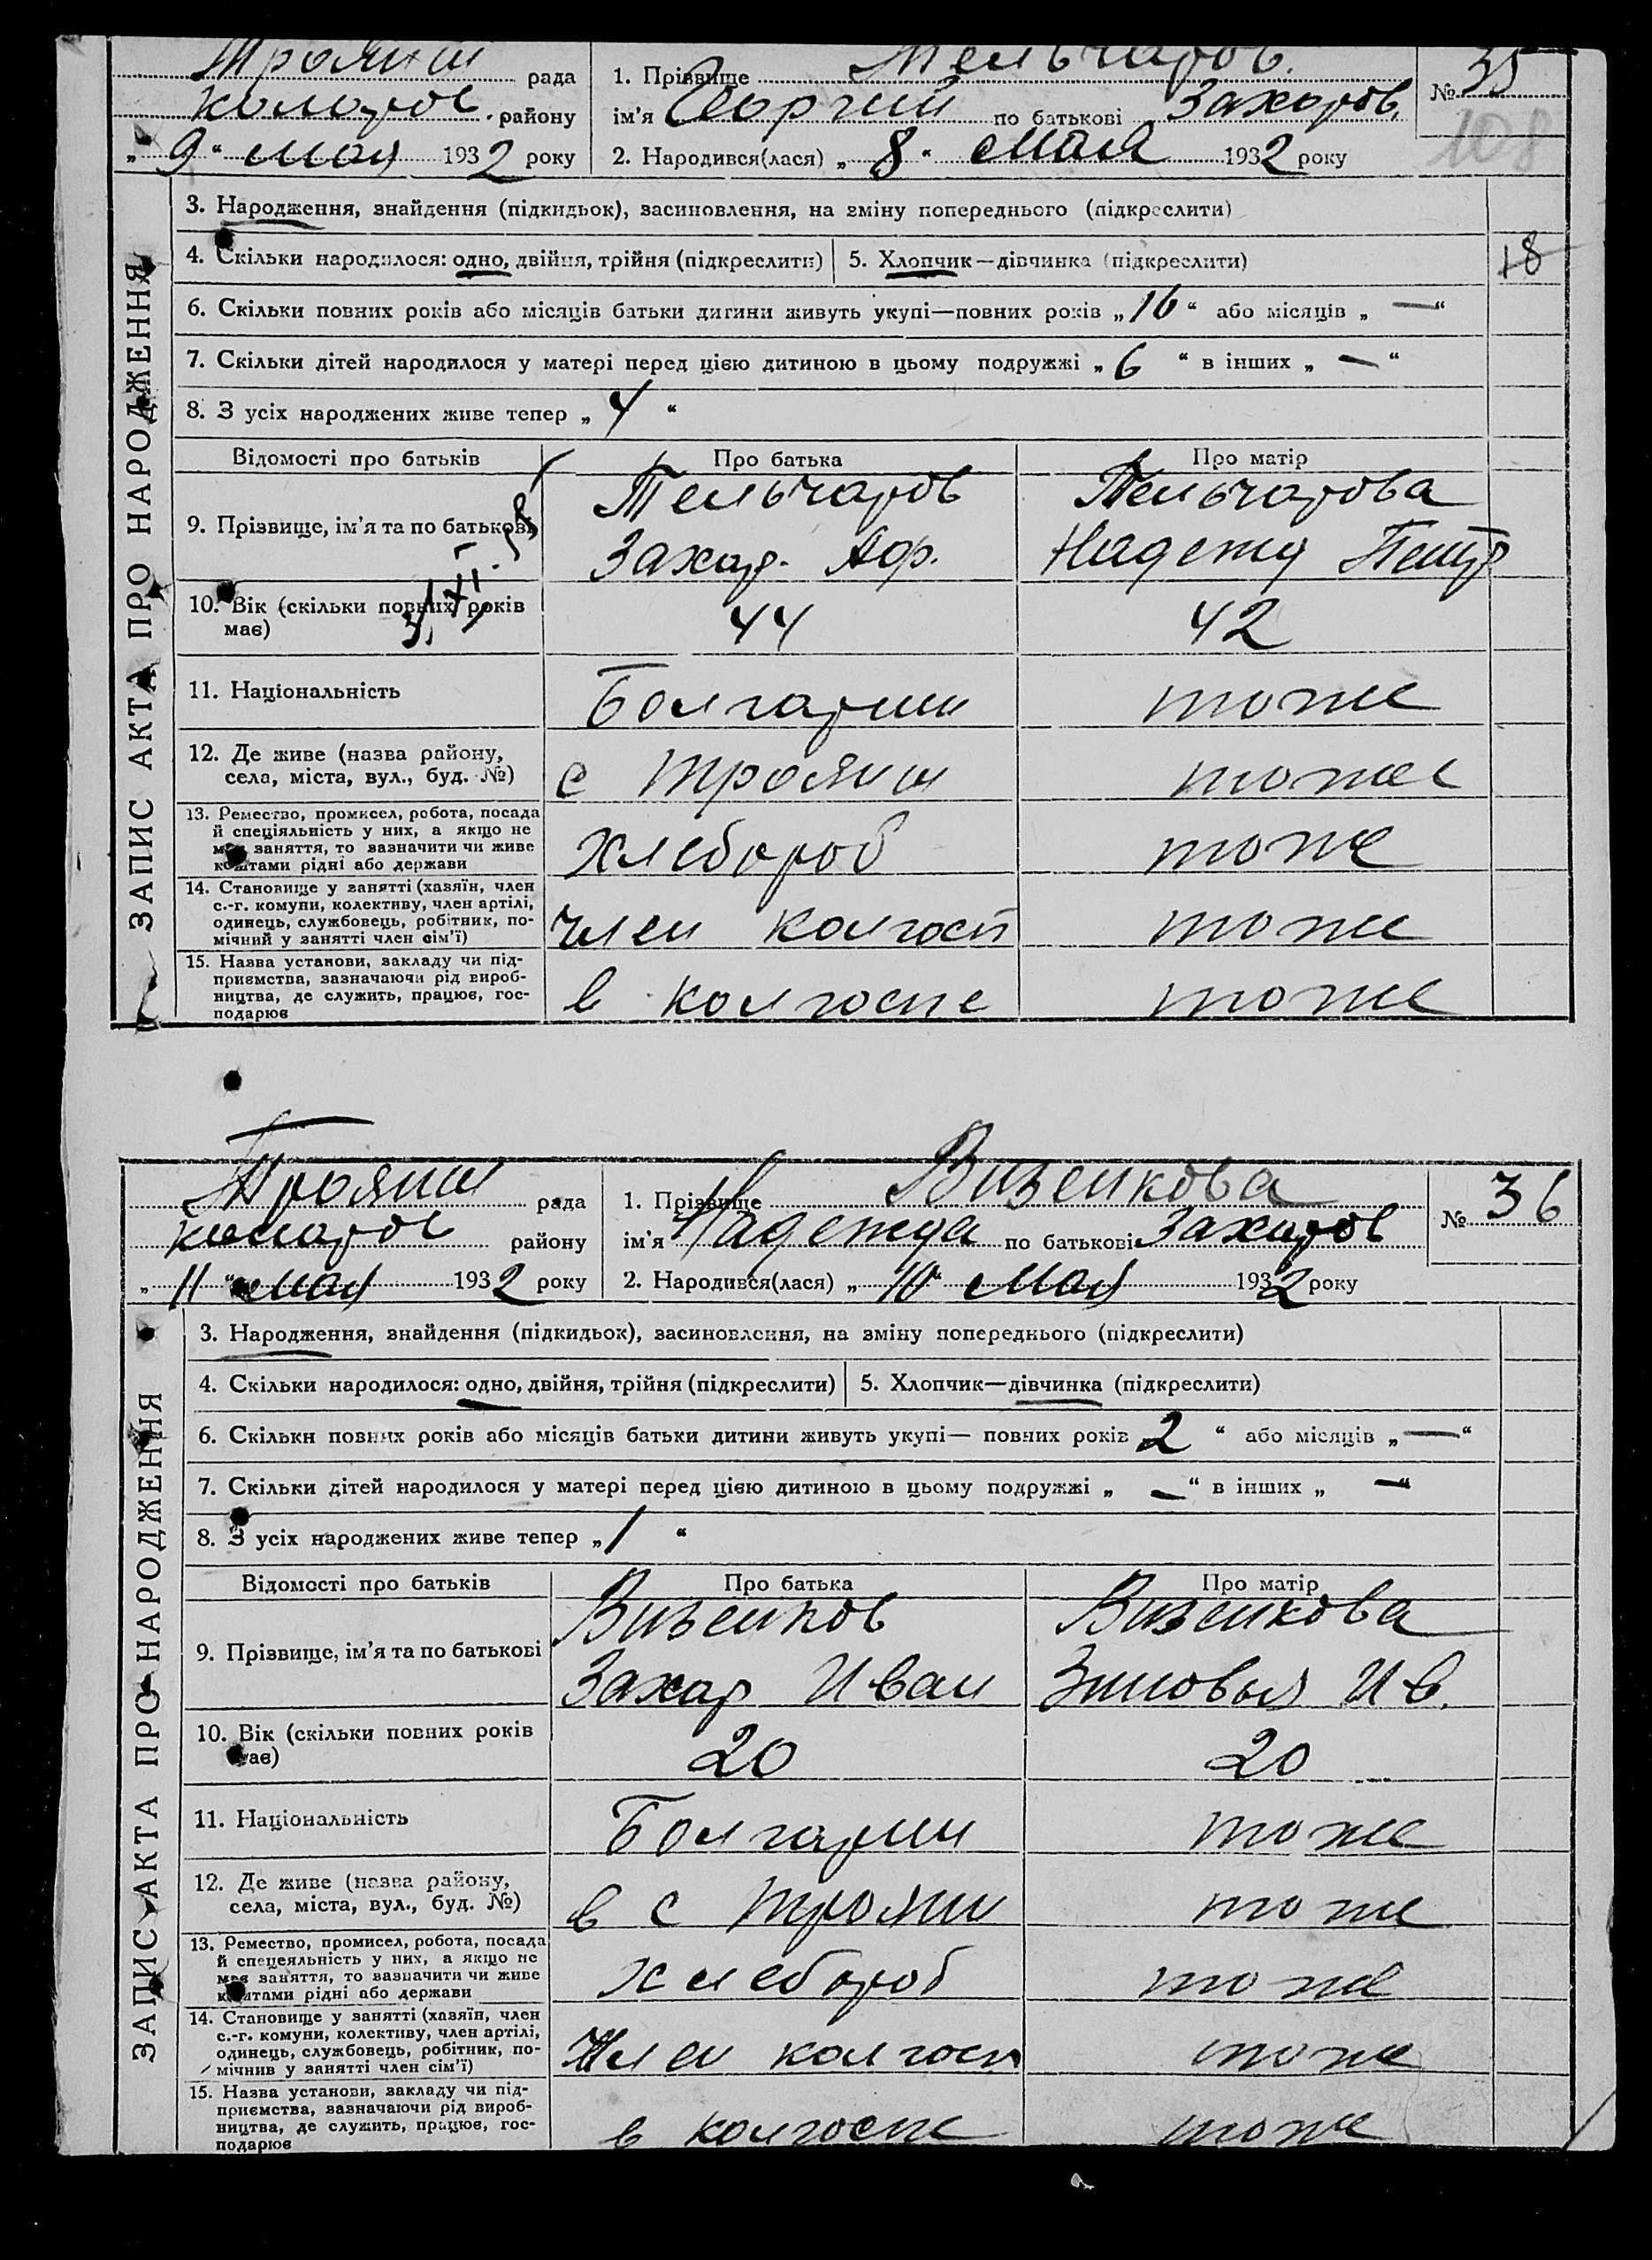 Троянш рада
Коларов. району
„ 9 “ мая 1932 року
1. Прізвище Тельчаров.
ім'я Георгий по батькові Захаров.
2. Народився(лася) „ 8 “ мая 1932 року
№ 35
108
ЗАПИС АКТА ПРО НАРОДЖЕННЯ
3. Народження, знайдення (підкидьок), засиновлення, на зміну попереднього (підкреслити)
4. Скільки народилося: одно, двійня, трійня (підкреслити) 5. Хлопчик—дівчинка (підкреслити)
18
6. Скільки повних років або місяців батьки дитини живуть укупі—повних років „ 16 “ або місяців „ — “
7. Скільки дітей народилося у матері перед цією дитиною в цьому подружжі „ 6 “ в інших „ — “
8. З усіх народжених живе тепер „ 4 “
Відомості про батьків Про батька Про матір
9. Прізвище, ім'я та по батькові
Тельчаров Тельчарова
Захар. Аф. Надежд Петр
10. Вік (скільки повних років
має)
44 42
11. Національність Болгарин тоже
12. Де живе (назва району,
села, міста, вул., буд. №)
с Троянш тоже
13. Ремество, промисел, робота, посада
й спеціяльність у них, а якщо не
має заняття, то зазначити чи живе
коштами рідні або держави
Хлебороб тоже
14. Становище у занятті (хазяїн, член
с.-г. комуни, колективу, член артілі,
одинець, службовець, робітник, по-
мічний у занятті член сім'ї)
член колгосп тоже
15. Назва установи, закладу чи під-
приємства, зазначаючи рід вироб-
ництва, де служить, працює, гос-
подарює
в колгоспе тоже
Троянш рада
Коларов району
„ 11 “ мая 1932 року
1. Прізвище Визенкова
ім'я Надежда по батькові Захаров
2. Народився(лася) „ 10 “ мая 1932 року
№ 36
ЗАПИС АКТА ПРО НАРОДЖЕННЯ
3. Народження, знайдення (підкидьок), засиновлення, на зміну попереднього (підкреслити)
4. Скільки народилося: одно, двійня, трійня (підкреслити) 5. Хлопчик—дівчинка (підкреслити)
6. Скільки повних років або місяців батьки дитини живуть укупі— повних років 2 “ або місяців „ — “
7. Скільки дітей народилося у матері перед цією дитиною в цьому подружжі „ — “ в інших „ — “
8. З усіх народжених живе тепер „ 1 “
Відомості про батьків Про батька Про матір
9. Прізвище, ім'я та по батькові
Визенков Визенкова
Захар Иван Зиновья Ив.
10. Вік (скільки повних років
має)
20 20
11. Національність Болгарин тоже
12. Де живе (назва району,
села, міста, вул., буд. №)
в с Троян тоже
13. Ремество, промисел, робота, посада
й спецеяльність у них, а якщо не
має заняття, то зазначити чи живе
коштами рідні або держави
Хлебороб тоже
14. Становище у занятті (хазяїн, член
с.-г. комуни, колективу, член артілі,
одинець, службовець, робітник, по-
мічнив у занятті член сім'ї)
Член колгосп тоже
15. Назва установи, закладу чи під-
приємства, зазначаючи рід вироб-
ництва, де служить, працює, гос-
подарює
в колгоспе тоже